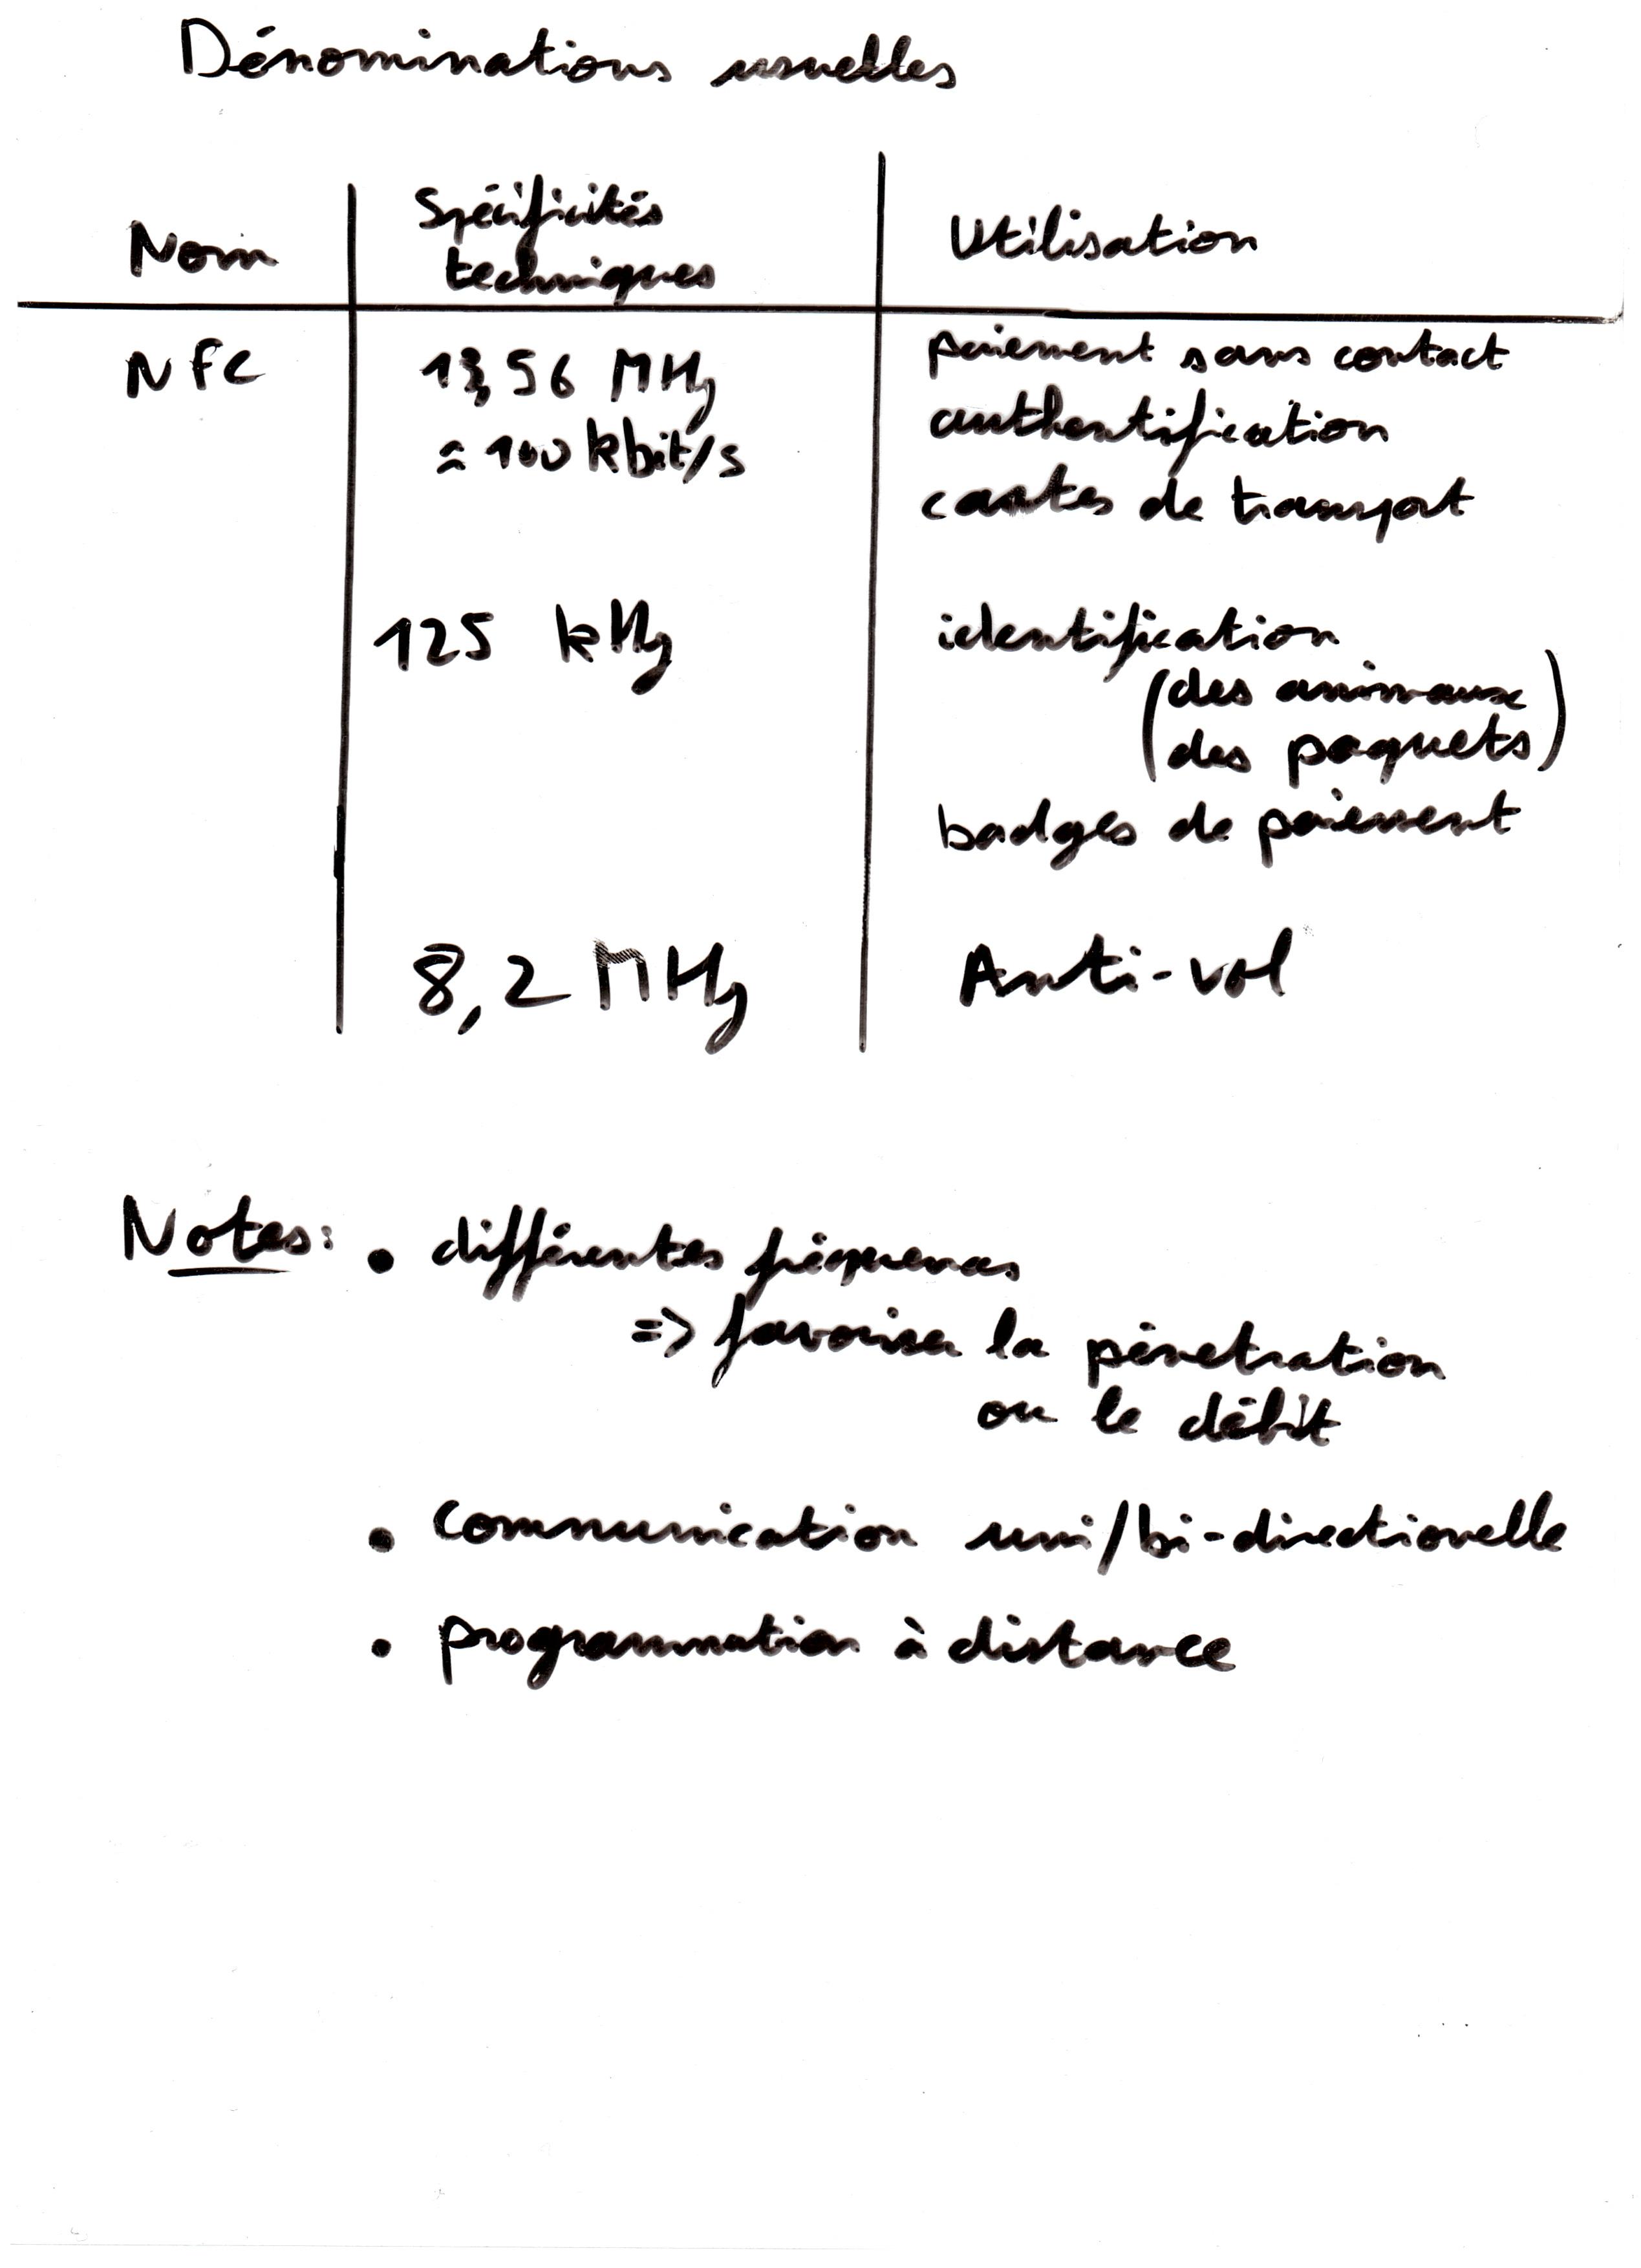 Dénominations usuelles
Nom
Spécificités
techniques
Utilisation
NFC
13,56 MHz
≈ 100 kbit/s
paiement sans contact
authentification
cartes de transport
125 kHz
identification
(des animaux
des paquets)
badges de paiement
8,2 MHz
Anti-vol
Notes: • différentes fréquences
=> favoriser la pénetration
ou le débit
• communication uni/bi-directionelle
• programmation à distance